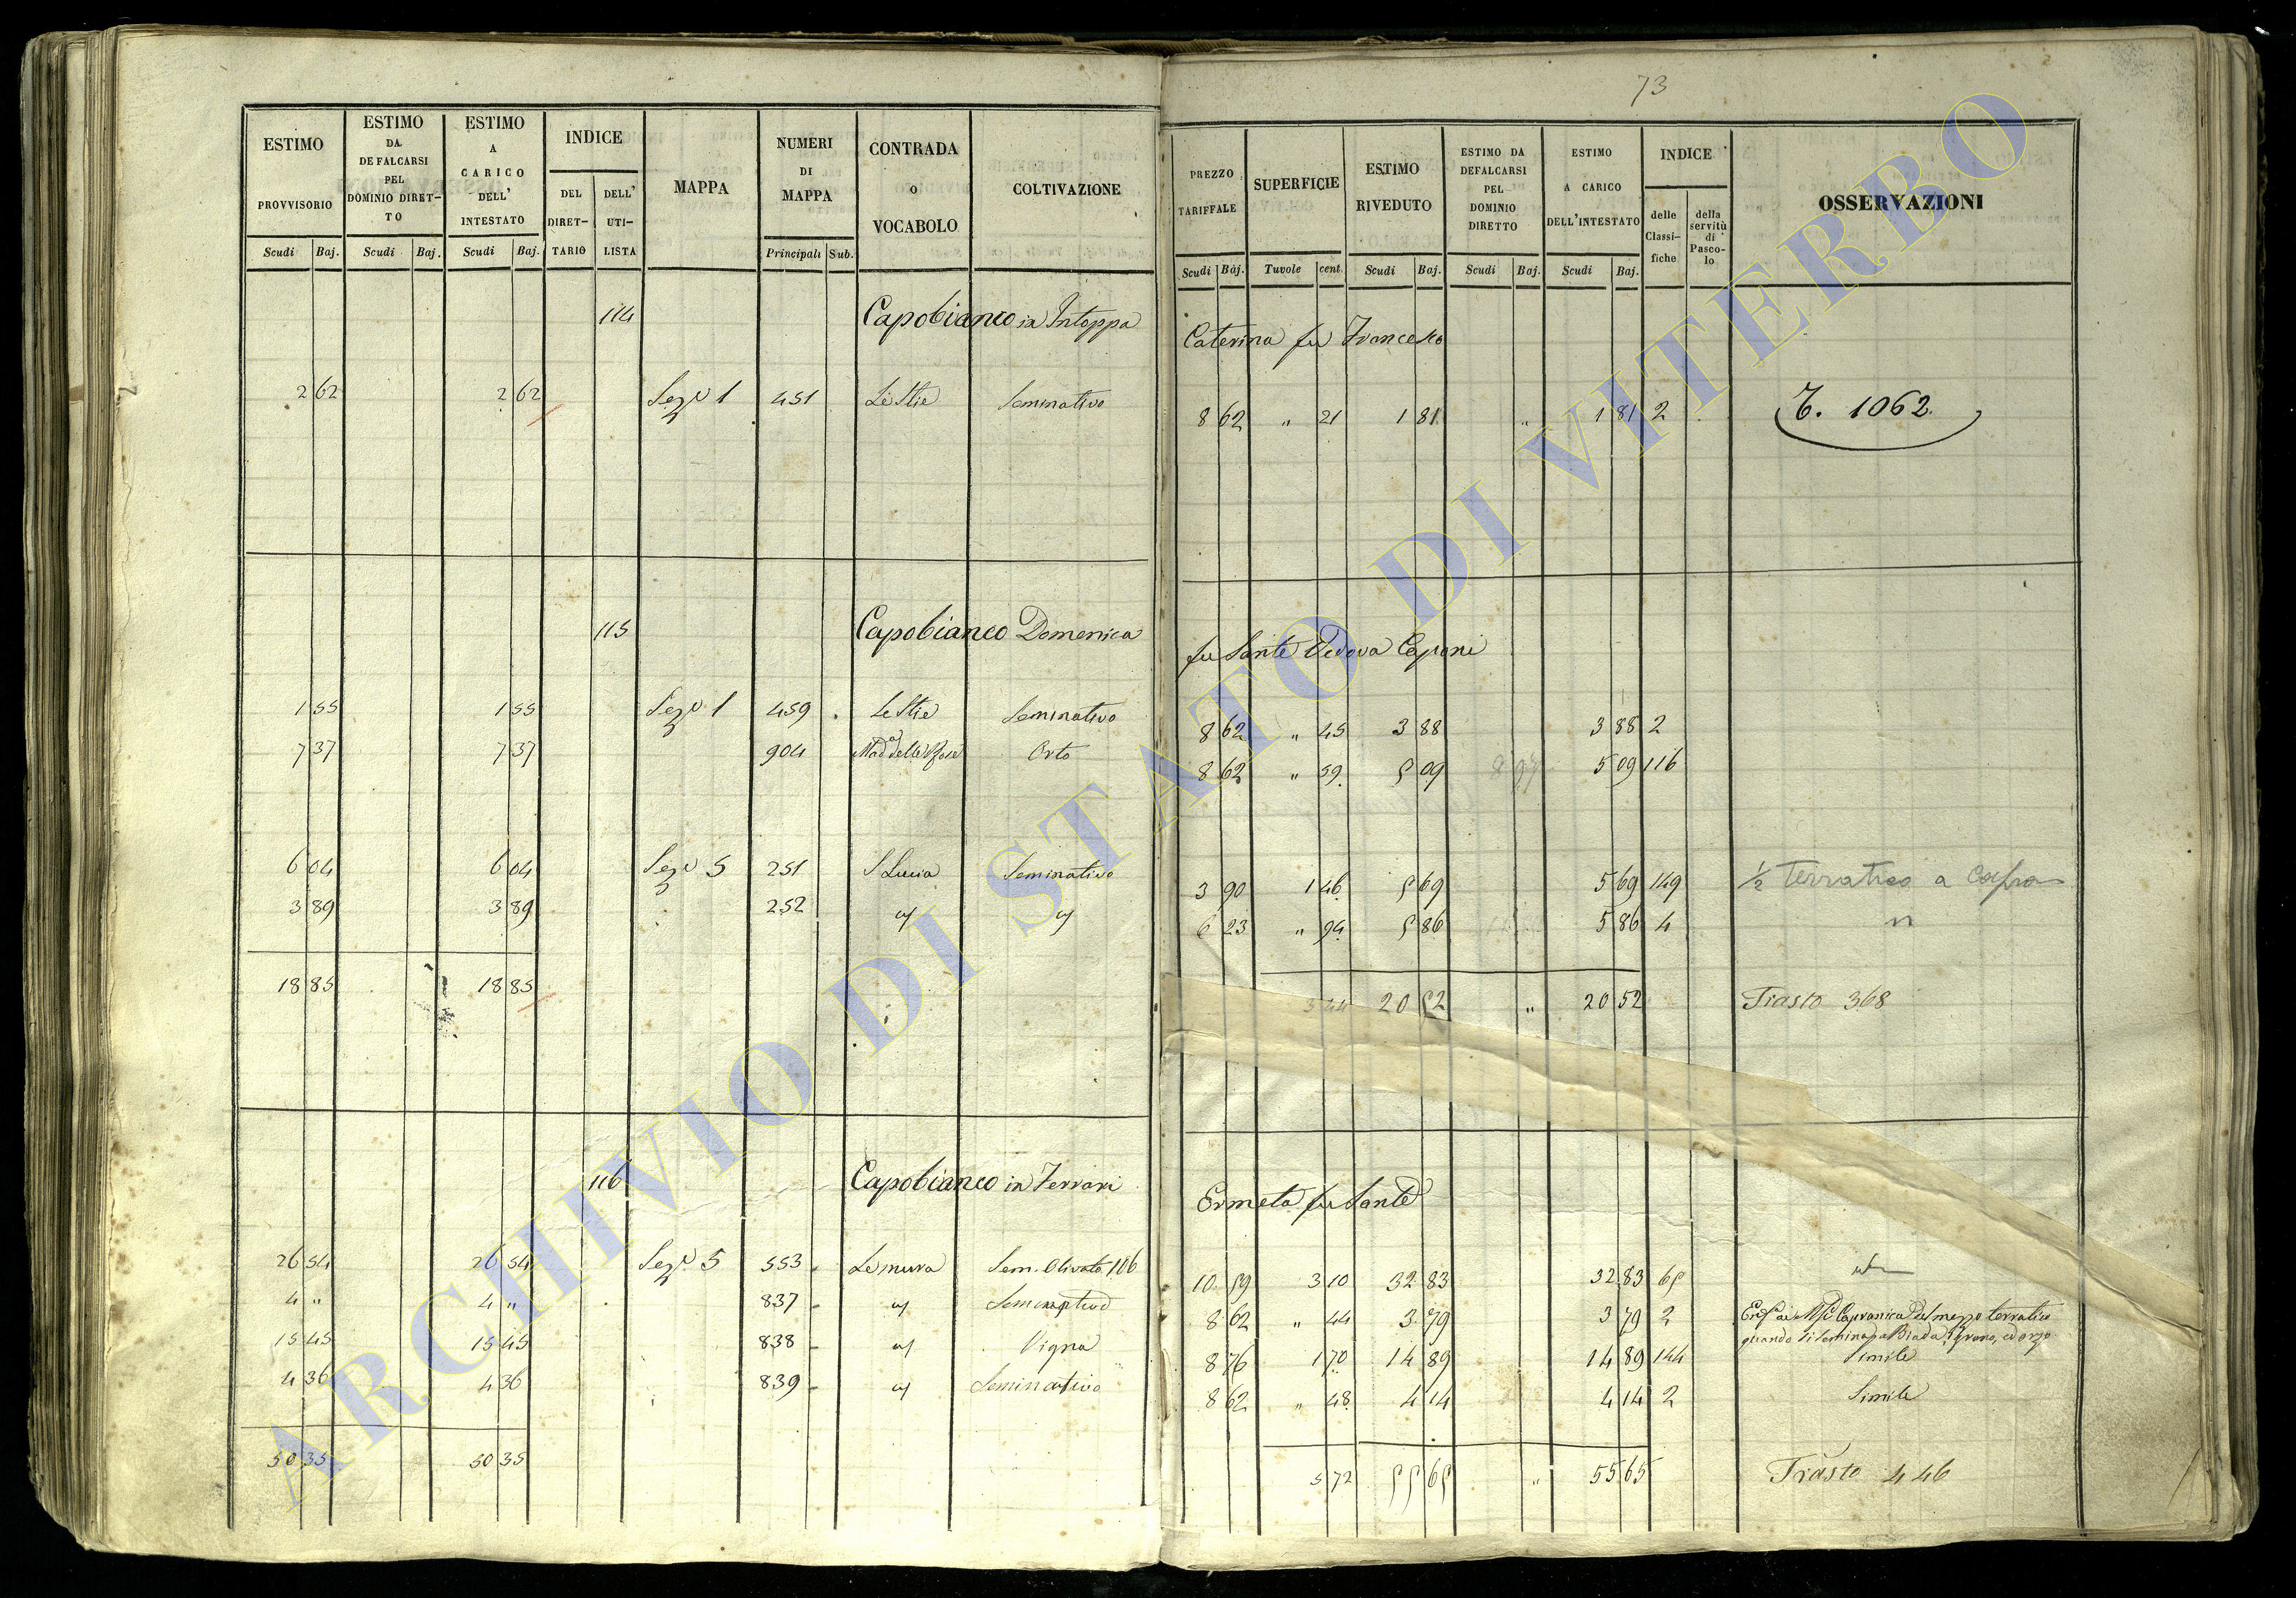 73
ESTIMO PROVVISORIO Scudi Baj.
ESTIMO DA DEFALCARSI PEL DOMINIO DIRET-TO Scudi Baj.
ESTIMO A CARICO DELL' INTESTATO Scudi Baj.
INDICE DEL DIRET-TARIO DELL' UTI-LISTA
MAPPA
NUMERI DI MAPPA Principali Sub.
CONTRADA o VOCABOLO
COLTIVAZIONE
PREZZO TARIFFALE Scudi Baj.
SUPERFICIE Tavole cent.
ESTIMO RIVEDUTO Scudi Baj.
ESTIMO DA DEFALCARSI PEL DOMINIO DIRETTO Scudi Baj.
ESTIMO A CARICO DELL'INTESTATO Scudi Baj.
INDICE delle Classi-fiche della servitù di Pasco-lo
OSSERVAZIONI
114 Capobianco in Intoppa Caterina fu Francesco
2 62 2 62 Sez.e 1 451 Le Stie Seminativo 8 62 " 21 1 81 " 1 81 2 T. 1062.
115 Capobianco Domenica fu Sante Vedova Caponi
1 55 1 55 Sez.e 1 459 Le Stie Seminativo 8 62 " 45 3 88 3 88 2
7 37 7 37 904 Mad.a delle Rose Orto 8 62 " 59 5 09 5 09 116
6 04 6 04 Sez.e 5 251 S Lucia Seminativo 3 90 1 46 5 69 5 69 149 1/2 terratico a
3 89 3 89 252 6 23 " 94 5 86 5 86 4 "
18 85 18 85 3 44 20 52 " 20 52 Trasto 368
116 Capobianco in Ferrari Ermeta fu Sante
26 54 26 54 Sez.e 5 553 Le mura Sem. Olivato 106 10 59 3 10 32 83 32 83 65
4 " 4 " 837 Seminativo 8 62 " 44 3 79 3 79 2 Capranica del mezzo terratico
quando si semina a Biada, grano, ed orzo
15 45 15 45 838 Vigna 8 76 1 70 14 89 14 89 144 Simile
4 36 4 36 839 Seminativo 8 62 " 48 4 14 4 14 2 Simile
50 35 50 35 5 72 55 65 " 55 65 Trasto 446
ARCHIVIO DI STATO DI VITERBO